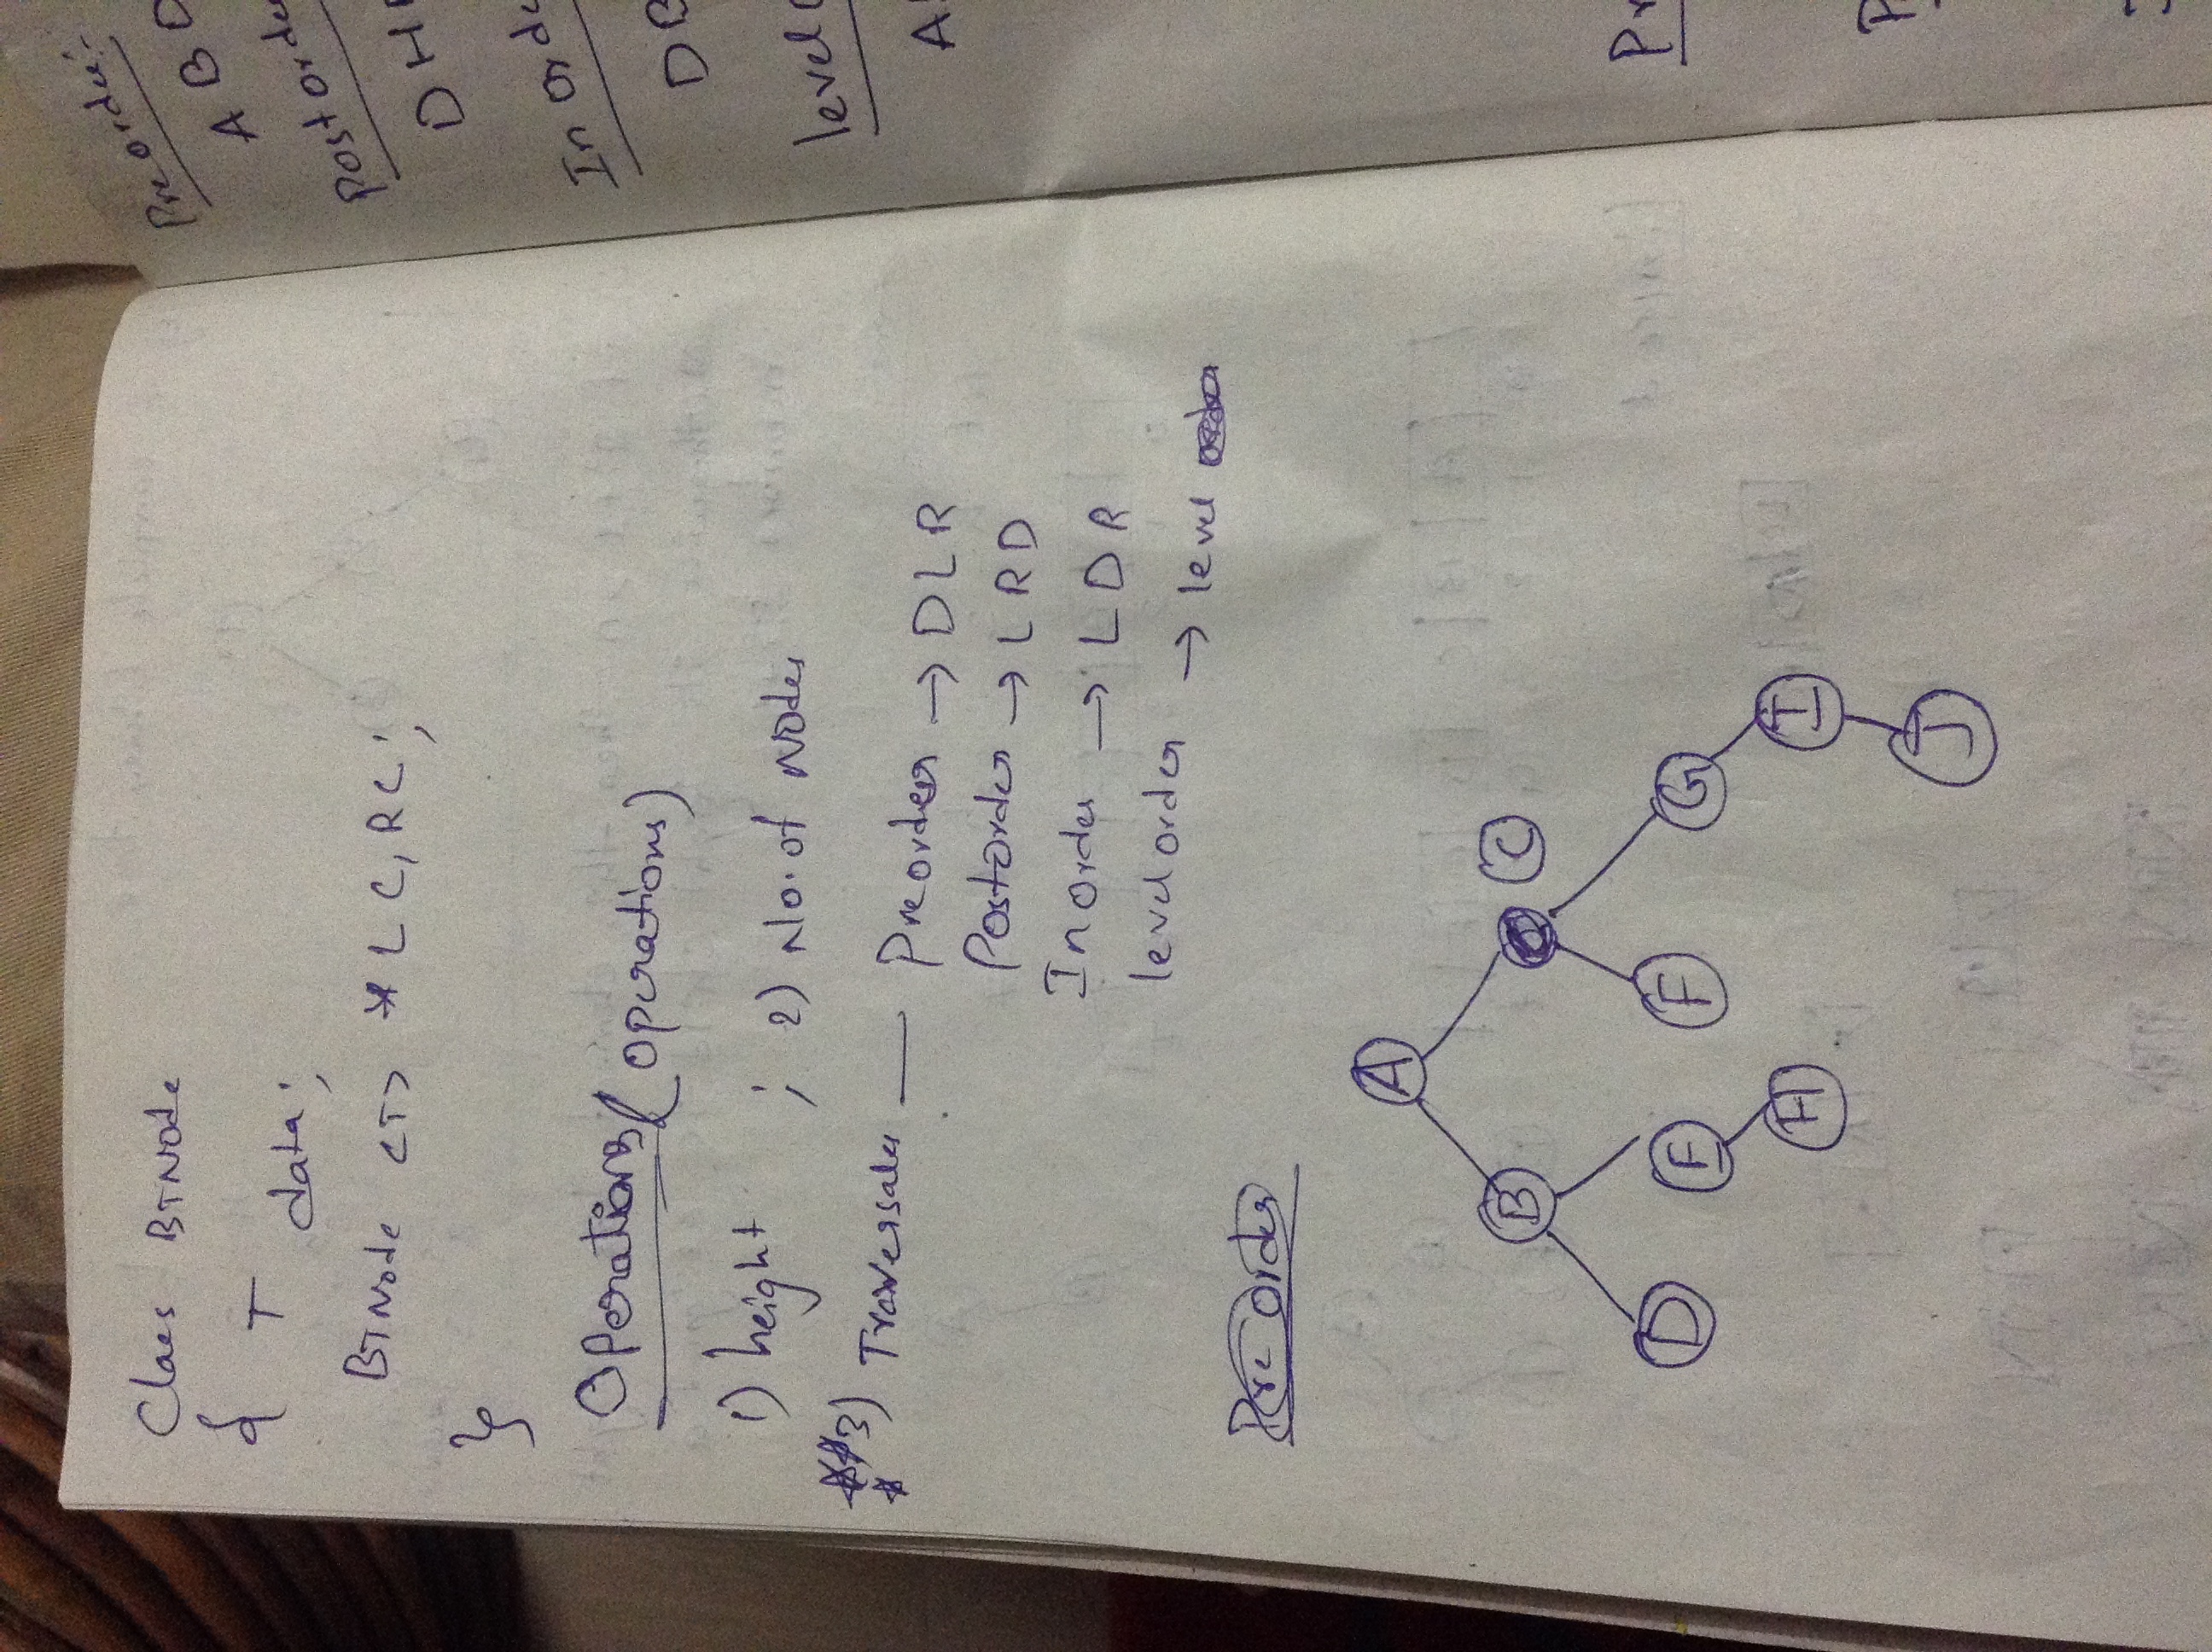 Class BTNode
{ T data;
BTNode <T> * LC, RC;
}
Operations (operations)
1) height ; 2) No. of Nodes
3) Traversales — Preorder → DLR
Postorder → LRD
Inorder → LDR
level order → level
Pre order
A
B C
D E F G
H I
J
Preorder:-
A B D
Post orde
D H
In orde
D B
level
A
Pr
P